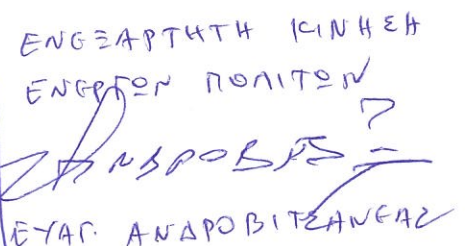 ΕΝΕΞΑΡΤΗΤΗ ΚΙΝΗΣΗ
ΕΝΕΡΓΩΝ ΠΟΛΙΤΩΝ
ΕΥΑΓ. ΑΝΔΡΟΒΙΤΣΑΝΕΑΣ